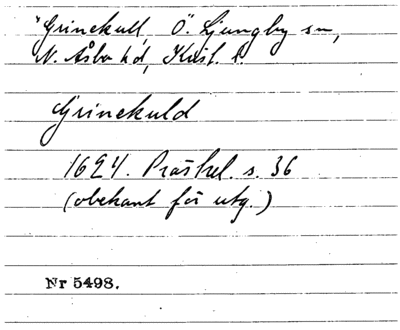 *Grinekull, Ö. Ljungby sn,
N. Åsbo hd, Krist. l.
Grinekuld
1624. Präskel. s. 36
(obekant för utg.)
Nr 5498.